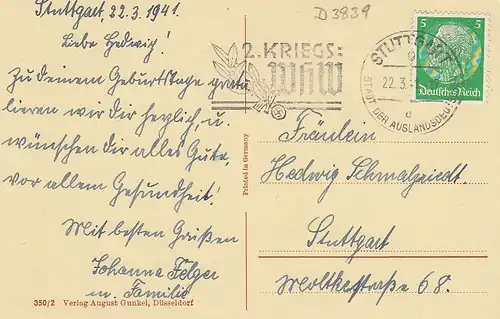 Stuttgart, 22.3.1941.
Liebe Hedwig!
Zu Deinem Geburtstage gratu
lieren wir Dir herzlich, u.
wünschen Dir alles Gute,
vor allem Gesundheit!
Mit besten Grüßen
Johanna Felger
u. Familie
350/2 Verlag August Gunkel, Düsseldorf
Printed in Germany
D3839
2. KRIEGS:
WHW
STUTTGART
22.3.
STADT DER AUSLANDSDEU
d
5 5
Deutsches Reich
Fräulein
Hedwig Schmalzriedt.
Stuttgart
Moltkestraße 68.